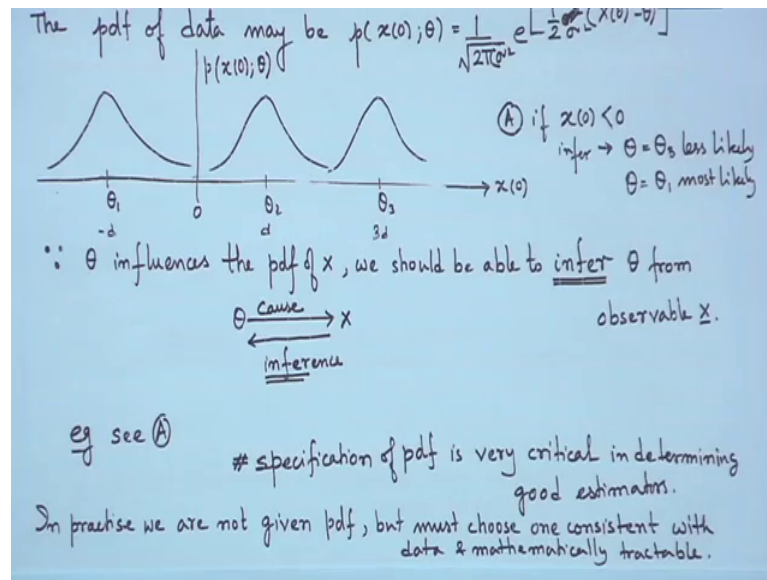 The pdf of data may be p(x(0);θ) = 1/√2πσ² e^[-1/2σ² (x(0)-θ)²]
p(x(0);θ)
Ⓐ if x(0) < 0
infer → θ = θ₃ less likely
θ = θ₁ most likely
θ₁ 0 θ₂ θ₃ → x(0)
-d d 3d
∵ θ influences the pdf of x, we should be able to infer θ from
observable x.
θ cause x
inference
eg see Ⓐ
# specification of pdf is very critical in determining
good estimators.
In practise we are not given pdf, but must choose one consistent with
data & mathematically tractable.